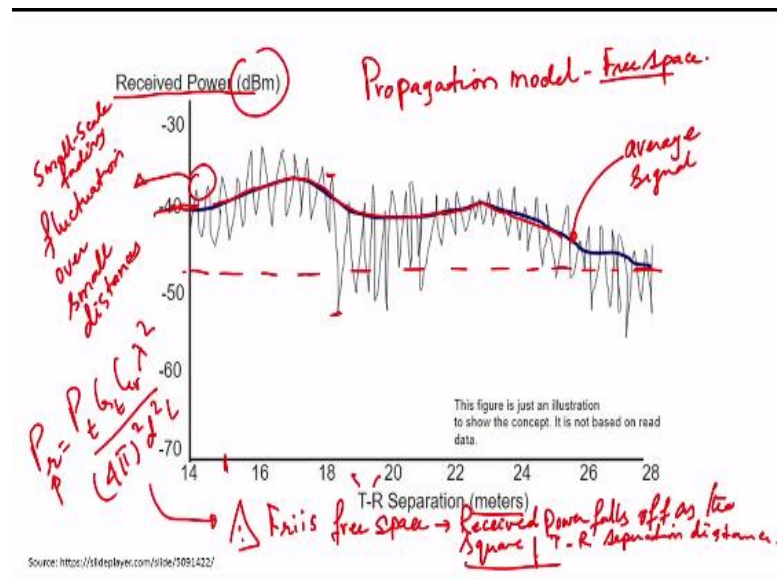 Received Power (dBm)
Propagation model - Free space.
Small-scale
fading
fluctuation
over
small
distances
average
signal
-30
-40
-50
-60
-70
P_r = P_t G_t G_r λ^2
(4π)^2 d^2 L
This figure is just an illustration
to show the concept. It is not based on read
data.
14 16 18 20 22 24 26 28
T-R Separation (meters)
Friis free space → Received power falls off as the
square T-R separation distance.
Source: https://slideplayer.com/slide/5091422/